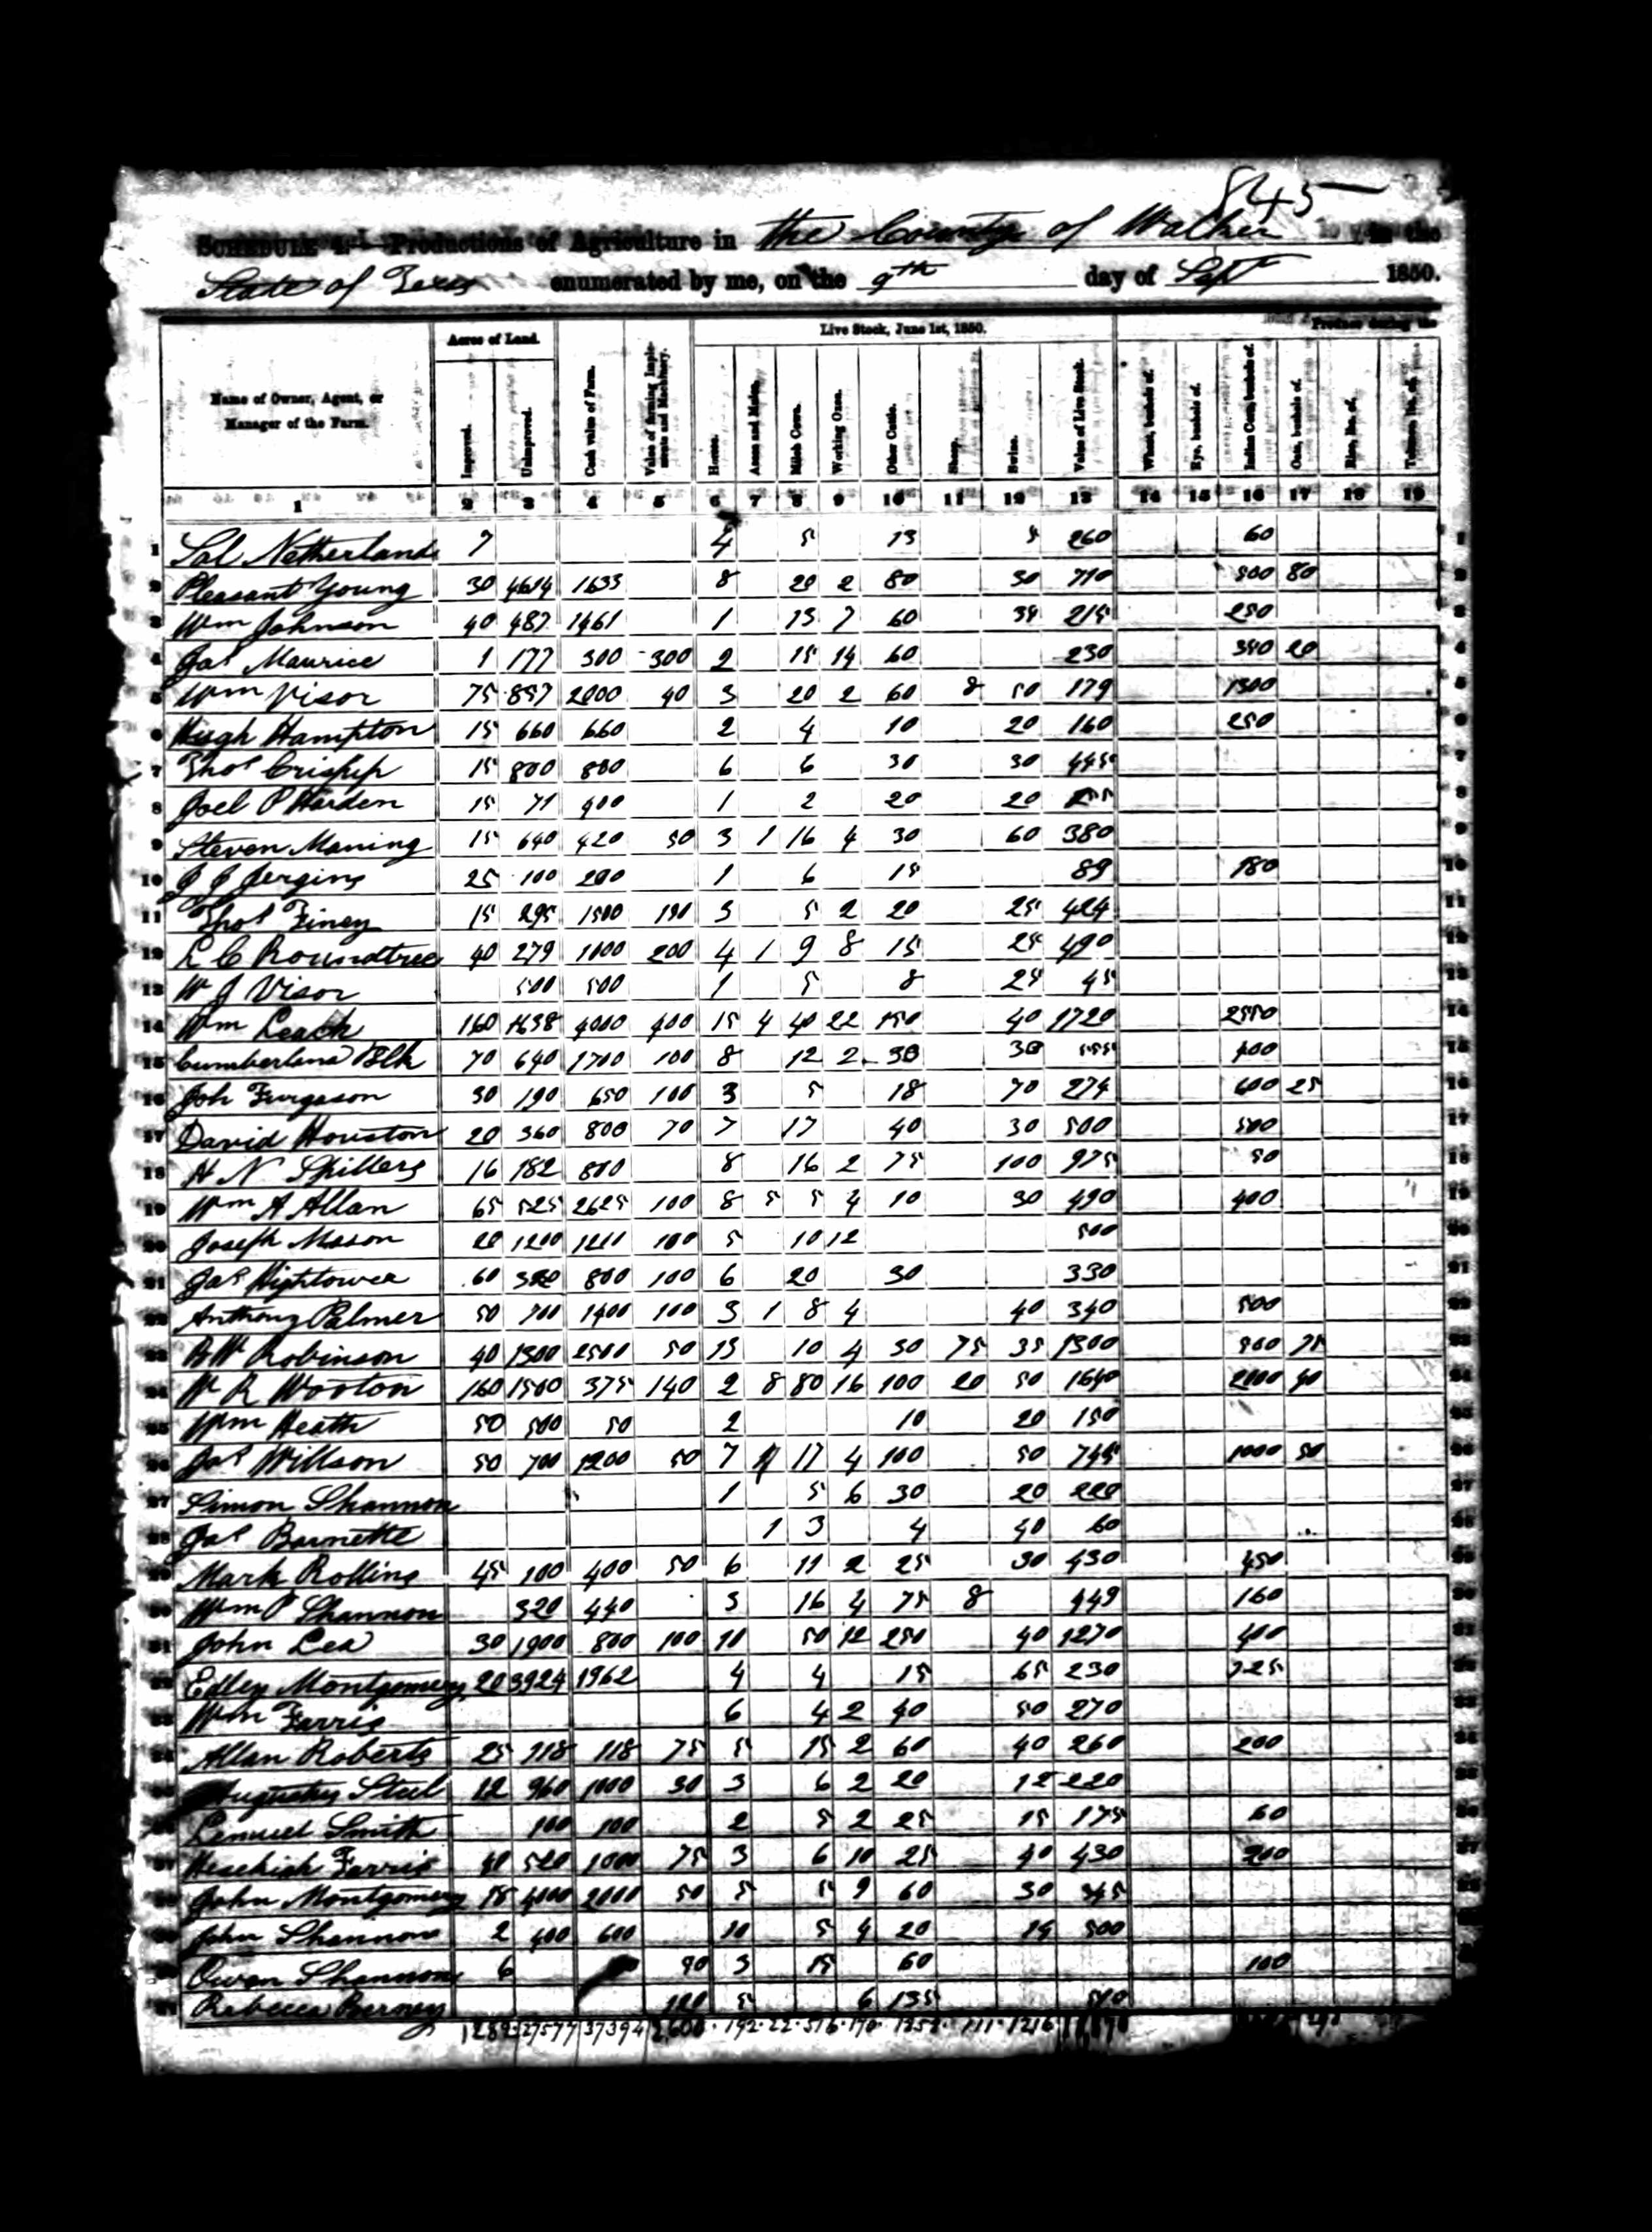 845
SCHEDULE 4.—Productions of Agriculture in the County of Walker in the
State of Texas enumerated by me, on the 9th day of Sept 1850.
Acres of Land. Live Stock, June 1st, 1850. Produce during the
Name of Owner, Agent, or Manager of the Farm. Improved. Unimproved. Cash value of Farm. Value of farming Implements and Machinery. Horses. Asses and Mules. Milch Cows. Working Oxen. Other Cattle. Sheep. Swine. Value of Live Stock. Wheat, bushels of. Rye, bushels of. Indian Corn, bushels of. Oats, bushels of. Rice, lbs. of. Tobacco, lbs. of.
1 2 3 4 5 6 7 8 9 10 11 12 13 14 15 16 17 18 19
1 Sol Netherland 7 4 5 13 260 60
2 Pleasant Young 30 4614 1633 8 20 2 80 30 710 500 80
3 Wm Johnson 40 487 1461 1 13 7 60 215 250
4 Jas Maurice 1 177 300 300 2 15 14 60 230 20
5 Wm Visor 75 857 2000 40 3 20 2 60 8 50 179 1300
6 Hugh Hampton 15 660 660 2 4 10 20 160 250
7 Thos 15 800 800 6 6 30 30 445
8 Joel P Harden 15 71 400 1 2 20 20
9 Steven Maning 15 640 420 50 3 1 16 4 30 60 380
10 J J Jergins 25 100 200 1 6 15 89 180
11 Thos Finey 15 295 1500 3 5 2 20 25 424
12 L C Roundtree 40 279 1000 200 4 1 9 8 15 25 490
13 W J Visor 500 500 1 5 8 25 45
14 Wm Leach 160 1638 4000 400 15 4 40 22 150 40 1720
15 Cumberland Blk 70 640 1700 100 8 12 2 30 30 555 400
16 Joh Furgason 30 190 650 100 3 5 18 70 274 600 25
17 David Houston 20 360 800 70 7 17 40 30 500 500
18 H N Spillers 16 182 800 8 16 2 75 100 975 50
19 Wm A Allan 65 525 2625 100 8 5 5 4 10 30 490 400
20 Joseph Mason 20 1200 1211 100 5 10 12 500
21 Jas Hightower 60 320 800 100 6 20 30 330
22 Anthony Palmer 50 700 1400 100 3 1 8 4 40 340 500
23 Robinson 40 1300 2500 50 13 10 4 50 75 35 1300 75
24 W R Wooton 160 1500 375 140 2 8 80 16 100 20 50 1640 2000 40
25 Wm Heath 50 500 50 2 10 20 150
26 Jas Willson 50 700 1200 50 7 17 4 100 50 745 1000 50
27 Simon Shannon 1 5 6 30 20 220
28 Jas Barnette 1 3 4 40 60
29 Mark Rolling 45 100 400 50 6 11 2 25 30 430 450
30 Wm P Shannon 320 440 3 16 4 75 8 449 160
31 John Lea 30 1900 800 100 10 50 12 250 40 1270 400
32 Edley Montgomery 20 3924 1962 4 4 15 65 230
33 Wm Farris 6 4 2 40 50 270
34 Allan Roberts 25 118 75 5 15 2 60 40 260 200
35 Augustus Steel 12 960 1000 30 3 6 2 20 12 220
36 Lemuel Smith 100 100 2 5 2 25 15 175 60
37 Farris 520 1000 75 3 6 10 25 40 430 200
38 John Montgomery 18 4000 2000 50 5 5 9 60 30 345
39 John Shannon 2 400 600 10 5 4 20 14 500
40 Owen Shannon 6 90 3 15 60 100
41 Rebecca 5 6 135
1289 27577 37394 192 22 516 170 111 1216